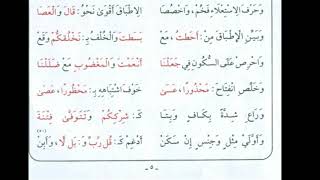 وَحَرْفَ الِاسْتِعْلَاءِ فَخِّمْ، وَاخْصُصَا الِاطْبَاقَ أَقْوَى نَحْوُ: قَالَ وَالْعَصَا
وَبَيِّنِ الْإِطْبَاقَ مِنْ: أَحَطتُ، مَعْ بَسَطتَ وَالْخُلْفُ بِـ: نَخْلُقكُّمْ وَقَعْ
وَاحْرِصْ عَلَى السُّكُونِ فِي جَعَلْنَا أَنْعَمْتَ وَالْمَغْضُوبِ مَعْ ضَلَلْنَا
وَخَلِّصِ انْفِتَاحَ: مَحْذُورًا، عَسَى خَوْفَ اشْتِبَاهِهِ بِـ: مَحْظُورًا، عَصَى
وَرَاعِ شِدَّةً بِكَافٍ وَبِتَا كَـ: شِرْكِكُمْ وَتَتَوَفَّى فِتْنَةَ
وَأَوَّلَيْ مِثْلٍ وَجِنْسٍ إِنْ سَكَنْ أَدْغِمْ كَـ: قُل رَّبِّ وَ: بَل لَّا، وَأَبِنْ
- ٥ -